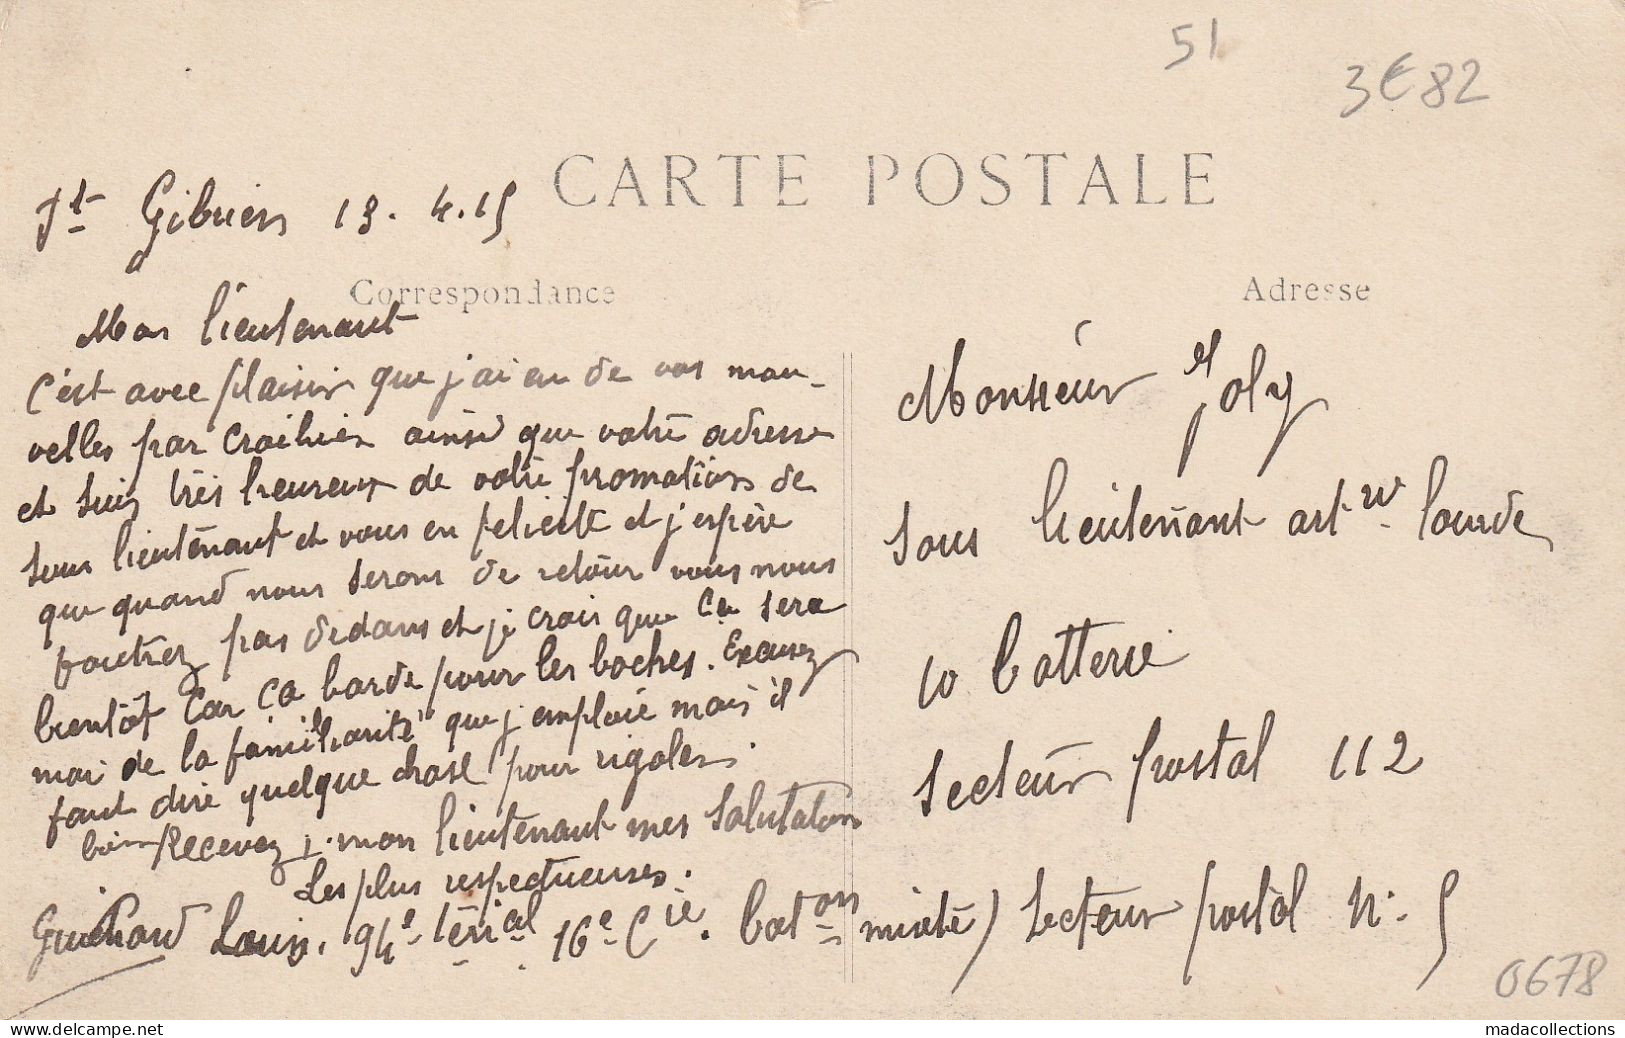 51
3€82
CARTE POSTALE
St Gibrien 13.4.15
Correspondance
Mon lieutenant
c'est avec plaisir que j'ai eu de vos nou-
velles par ainsi que votre adresse
et suis très heureux de votre promotions de
sous lieutenant et vous en felicite et j'espère
que quand nous serons de retour vous nous
foutrez pas dedans et je crois que ce sera
bientôt car ça barde pour les boches. Excusez
moi de la familiarité que j'emploie mais il
faut dire quelque chose pour rigoler.
Recevez mon lieutenant mes salutations
les plus respectueuses.
Guichard Louis. 94e térial 16e Cie. Baton mixte) Secteur postal N. 5
Adresse
Monsieur Joly
sous lieutenant artie lourde
10 batterie
secteur postal 112
0678
madacollections